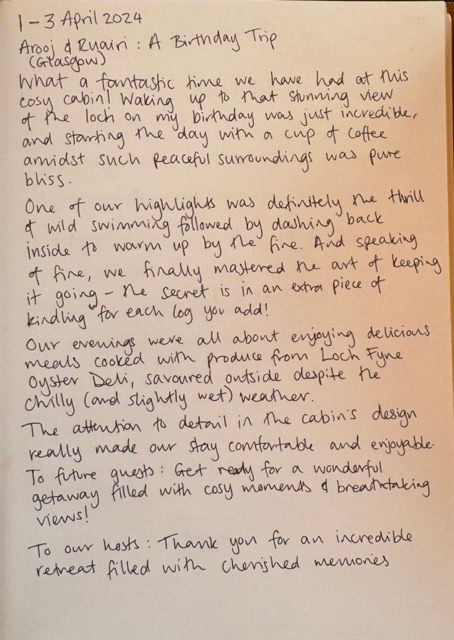 1 – 3 April 2024
Arooj & Ruairi : A Birthday Trip
(Glasgow)
What a fantastic time we have had at this
cosy cabin! Waking up to that stunning view
of the loch on my birthday was just incredible,
and starting the day with a cup of coffee
amidst such peaceful surroundings was pure
bliss.
One of our highlights was definitely the thrill
of wild swimming followed by dashing back
inside to warm up by the fire. And speaking
of fire, we finally mastered the art of keeping
it going – the secret is in an extra piece of
kindling for each log you add!
Our evenings were all about enjoying delicious
meals cooked with produce from Loch Fyne
Oyster Deli, savoured outside despite the
chilly (and slightly wet) weather.
The attention to detail in the cabin's design
really made our stay comfortable and enjoyable.
To future guests : Get ready for a wonderful
getaway filled with cosy moments & breathtaking
views!
To our hosts : Thank you for an incredible
retreat filled with cherished memories